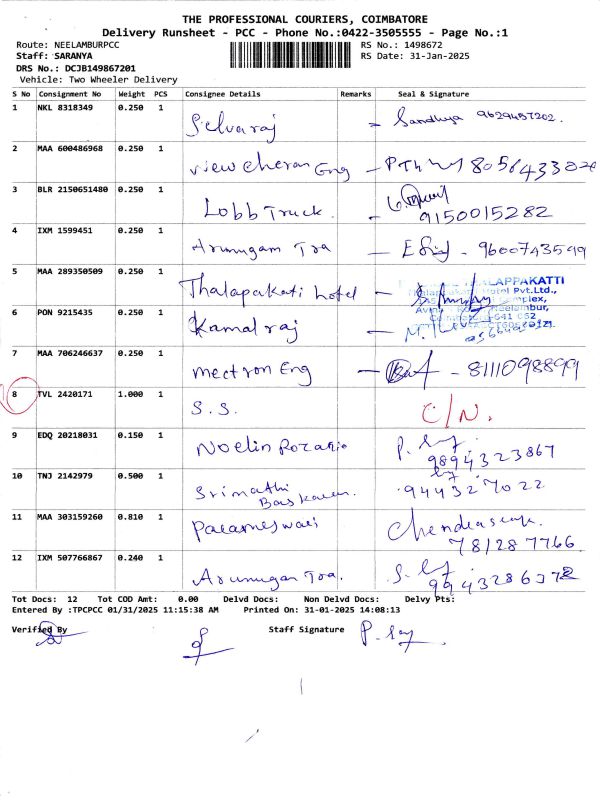 THE PROFESSIONAL COURIERS, COIMBATORE
Delivery Runsheet - PCC - Phone No.:0422-3505555 - Page No.:1
Route: NEELAMBURPCC RS No.: 1498672
Staff: SARANYA RS Date: 31-Jan-2025
DRS No.: DCJB149867201
Vehicle: Two Wheeler Delivery
S No Consignment No Weight PCS Consignee Details Remarks Seal & Signature
1 NKL 8318349 0.250 1 Selvaraj - Sandhya 9629457202.
2 MAA 600486968 0.250 1 view cheran Eng -
3 BLR 2150651480 0.250 1 Lobb Truck. - 9150015282
4 IXM 1599451 0.250 1 Arumugam Tra - 9600743599
5 MAA 289350509 0.250 1 Thalapakati hotel -
THALAPPAKATTI
Hotel Pvt.Ltd.,
Complex,
Neelambur,
Coimbatore-641 062
6 PON 9215435 0.250 1 Kamal raj -
7 MAA 706246637 0.250 1 mectron Eng - 8111098899
8 TVL 2420171 1.000 1 S.S. C/N.
9 EDQ 20218031 0.150 1 Noelin Rozario 9894323867
10 TNJ 2142979 0.500 1 Srimathi Baskaran. 944327022
11 MAA 303159260 0.810 1 Parameswari 781287766
12 IXM 507766867 0.240 1 Arumugan Tra.
Tot Docs: 12 Tot COD Amt: 0.00 Delvd Docs: Non Delvd Docs: Delvy Pts:
Entered By :TPCPCC 01/31/2025 11:15:38 AM Printed On: 31-01-2025 14:08:13
Verified By Staff Signature